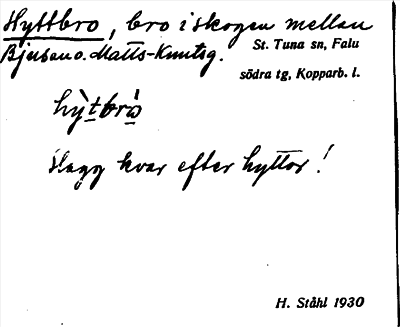 Hyttbro, bro i skogen mellan
Bjursen o. Matts-Knutsg.
St. Tuna sn, Falu
södra tg, Kopparb. l.
hỳtbrò
slagg kvar efter hyttor!
H. Ståhl 1930